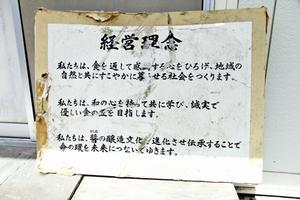 経営理念
私たちは、食を通して感 する心をひろげ、地域の
自然と共にすこやかに暮らせる社会をつくります。
私たちは、和の心を持って共に学び、誠実で
優しい食の匠を目指します。
私たちは、醤の醸造文化を進化させ伝承することで
命の環を未来につないでゆきます。